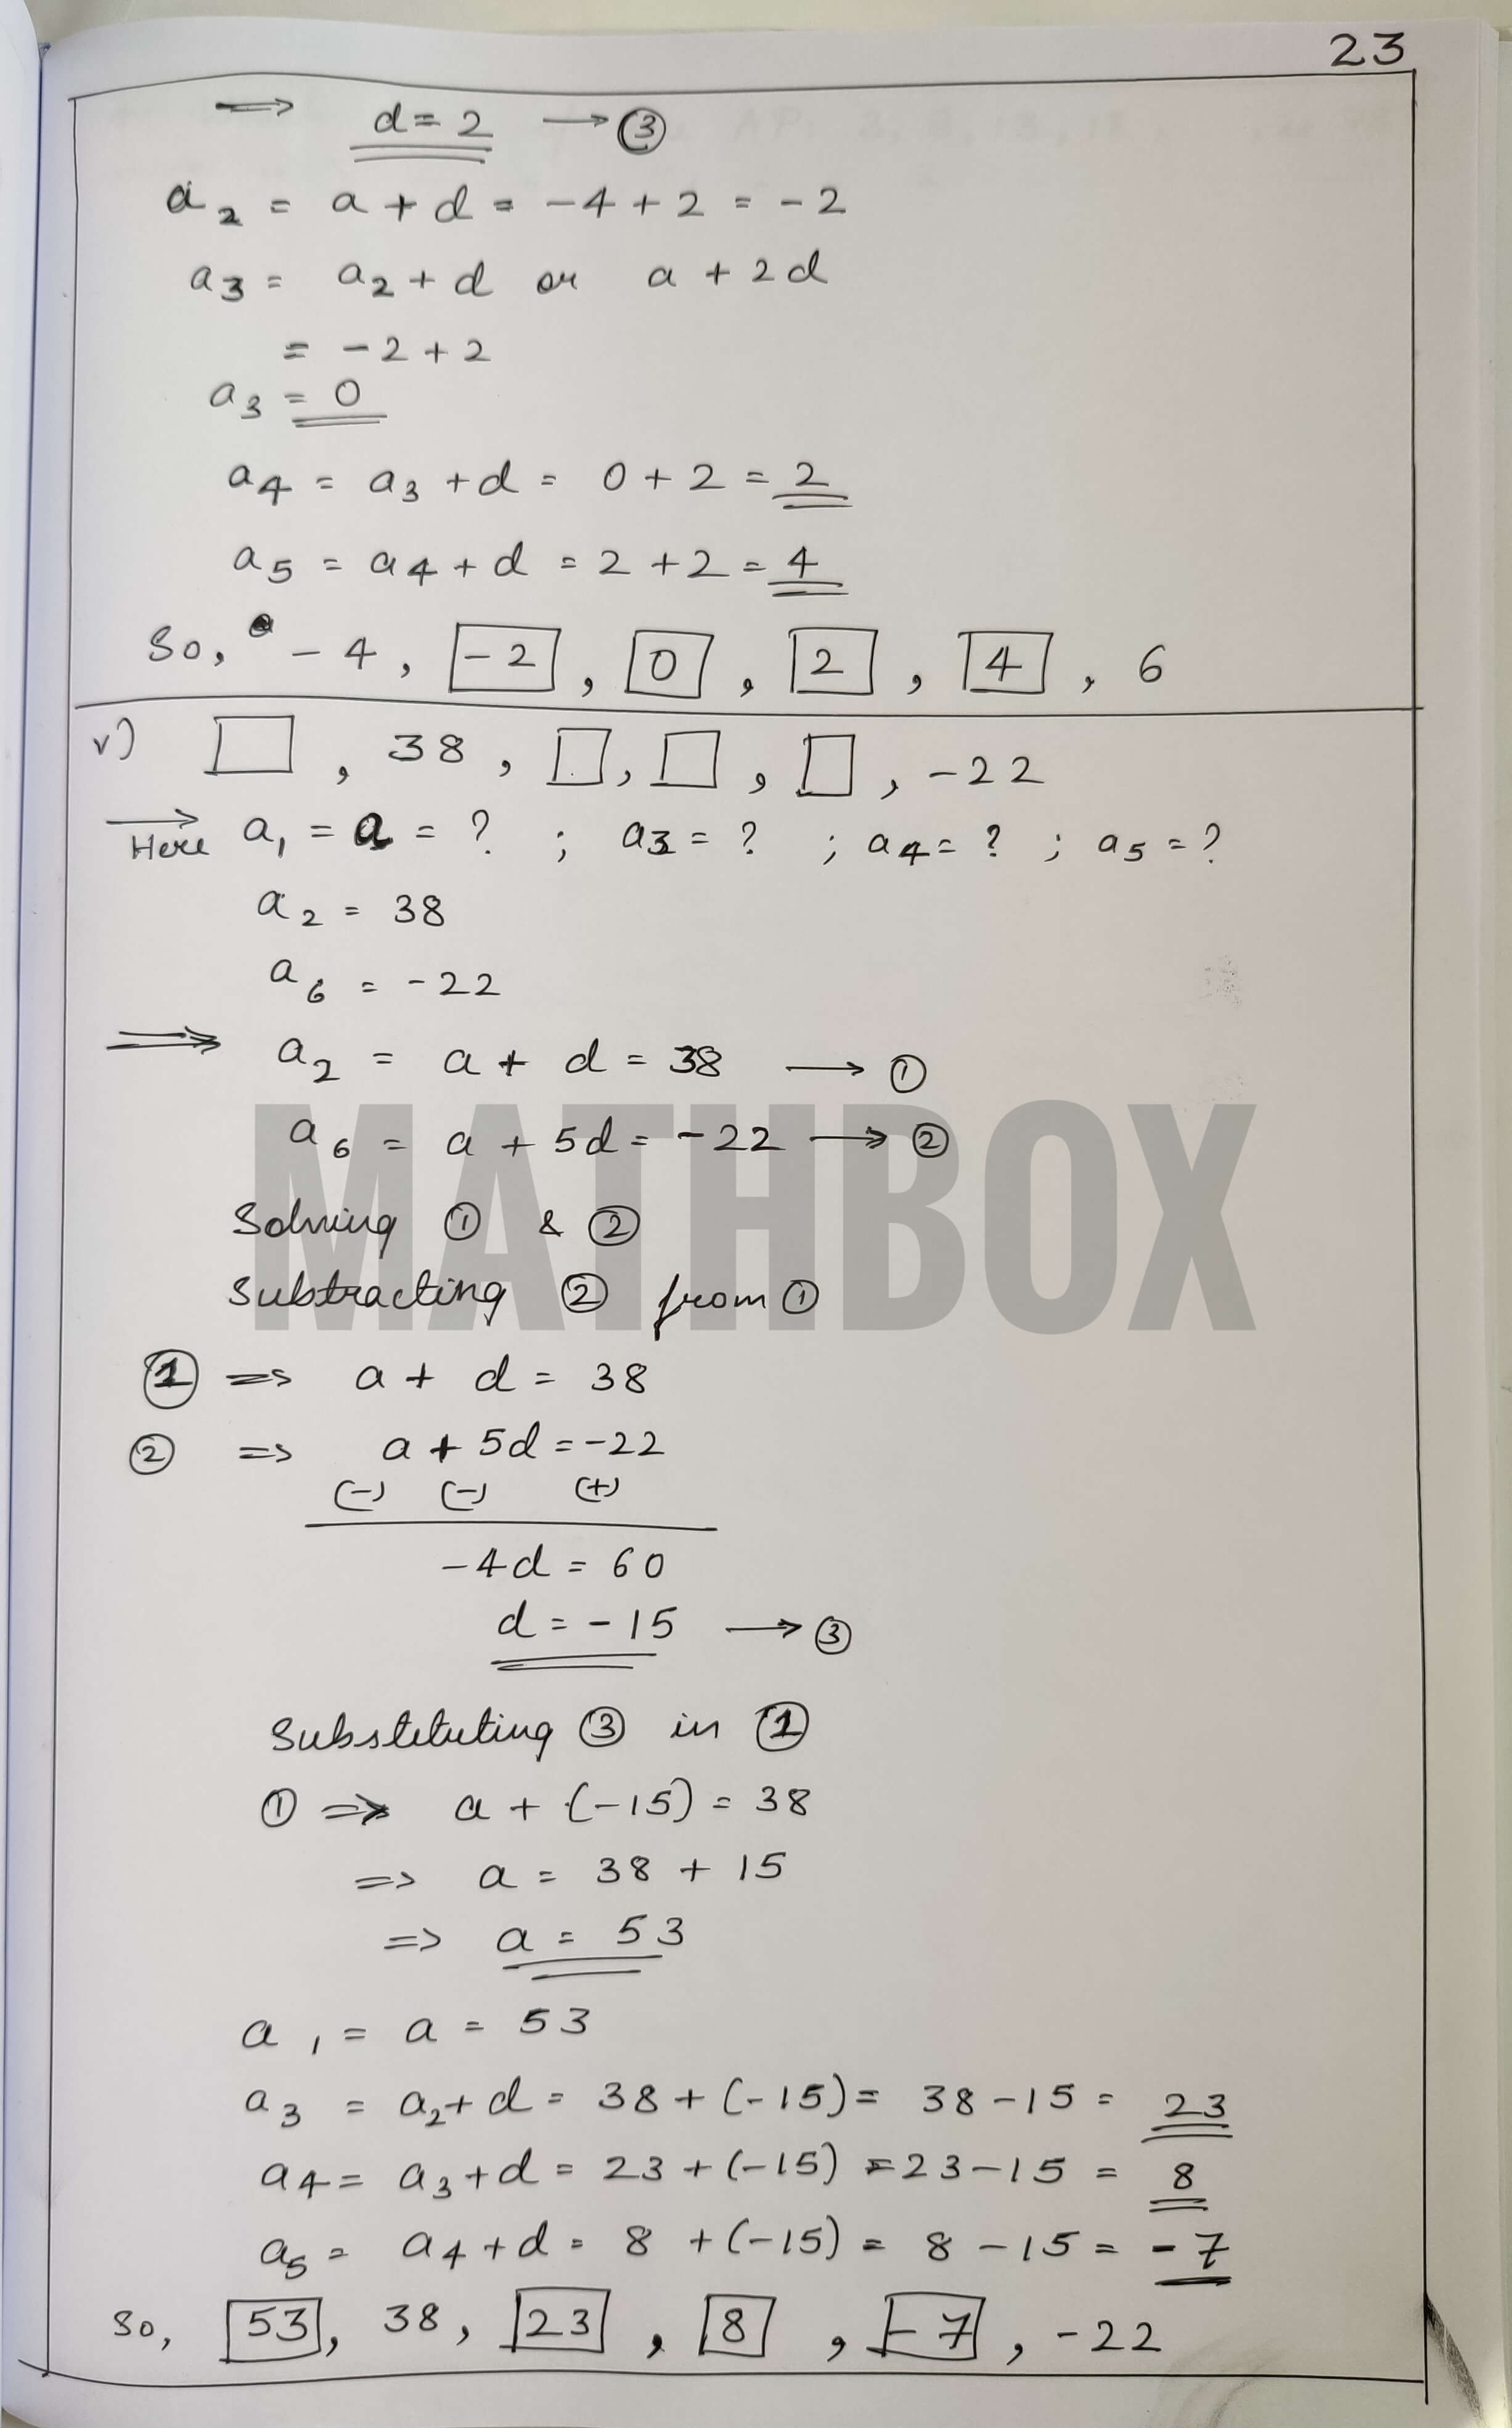 23
⇒ d = 2 → ③
a₂ = a + d = -4 + 2 = -2
a₃ = a₂ + d or a + 2d
= -2 + 2
a₃ = 0
a₄ = a₃ + d = 0 + 2 = 2
a₅ = a₄ + d = 2 + 2 = 4
So, -4, -2, 0, 2, 4, 6
v) □, 38, □, □, □, -22
→ Here a₁ = a = ? ; a₃ = ? ; a₄ = ? ; a₅ = ?
a₂ = 38
a₆ = -22
⇒ a₂ = a + d = 38 → ①
a₆ = a + 5d = -22 → ②
MATHBOX
Solving ① & ②
Subtracting ② from ①
① ⇒ a + d = 38
② ⇒ a + 5d = -22
(-) (-) (+)
-4d = 60
d = -15 → ③
Substituting ③ in ①
① ⇒ a + (-15) = 38
⇒ a = 38 + 15
⇒ a = 53
a₁ = a = 53
a₃ = a₂ + d = 38 + (-15) = 38 - 15 = 23
a₄ = a₃ + d = 23 + (-15) = 23 - 15 = 8
a₅ = a₄ + d = 8 + (-15) = 8 - 15 = -7
So, 53, 38, 23, 8, -7, -22